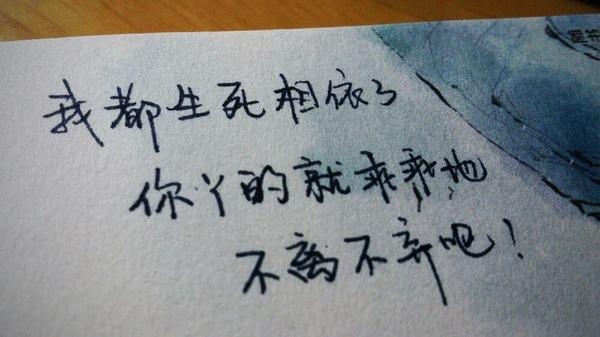 我都生死相依了
你丫的就乖乖地
不离不弃吧！